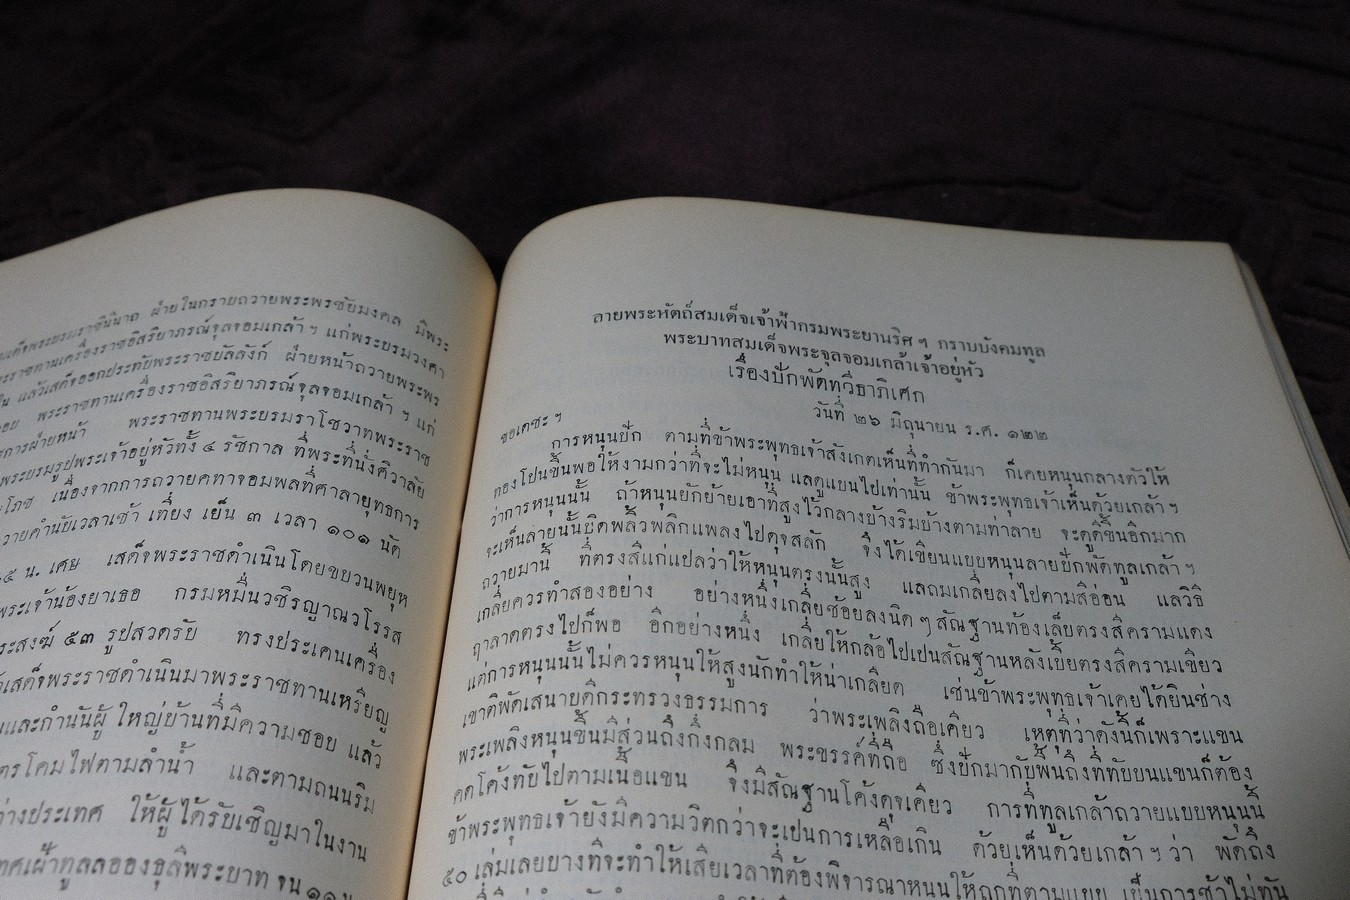 เด็จพระบรมราชินีนาถ ฝ่ายในกราบถวายพระพรชัยมงคล มีพระ
ราชทานเครื่องราชอิสริยาภรณ์จุลจอมเกล้า ฯ แก่พระบรมวงศา
แล้วเสด็จออกประทับพระราชบัลลังก์ ฝ่ายหน้าถวายพระพร
พระราชทานเครื่องราชอิสริยาภรณ์จุลจอมเกล้า ฯ แก่
การฝ่ายหน้า พระราชทานพระบรมราโชวาทพระราช
พระบรมรูปพระเจ้าอยู่หัวทั้ง ๔ รัชกาล ที่พระที่นั่งศิวาลัย
โภช เนื่องจากการถวายคทาจอมพลที่ศาลายุทธการ
วายคำนับเวลาเช้า เที่ยง เย็น ๓ เวลา ๑๐๑ นัด
.๕ น. เศษ เสด็จพระราชดำเนินโดยขบวนพยุห
พระเจ้าน้องยาเธอ กรมหมื่นวชิรญาณวโรรส
ระสงฆ์ ๕๓ รูปสวดรับ ทรงประเคนเครื่อง
เสด็จพระราชดำเนินมาพระราชทานเหรียญ
และกำนันผู้ใหญ่บ้านที่มีความชอบ แล้ว
ตรโคมไฟตามลำน้ำ และตามถนนริม
ต่างประเทศ ให้ผู้ได้รับเชิญมาในงาน
ทศเฝ้าทูลลอองธุลีพระบาท จน ๑๑ น
ลายพระหัตถ์สมเด็จเจ้าฟ้ากรมพระยานริศ ฯ กราบบังคมทูล
พระบาทสมเด็จพระจุลจอมเกล้าเจ้าอยู่หัว
เรื่องปักพัดทวีธาภิเศก
วันที่ ๒๖ มิถุนายน ร.ศ. ๑๒๒
ขอเดชะ ฯ
การหนุนปัก ตามที่ข้าพระพุทธเจ้าสังเกตเห็นที่ทำกันมา ก็เคยหนุนกลางตัวให้
ทองโปนขึ้นพอให้งามกว่าที่จะไม่หนุน แลดูแบนไปเท่านั้น ข้าพระพุทธเจ้าเห็นด้วยเกล้า ฯ
ว่าการหนุนนั้น ถ้าหนุนยักย้ายเอาที่สูงไว้กลางบ้างริมบ้างตามทำลาย จะดูดีขึ้นอีกมาก
จะเห็นลายนั้นบิดพลิ้วพลิกแพลงไปดุจสลัก จึงได้เขียนแบบหนุนลายปักพัดทูลเกล้า ฯ
ถวายมานี้ ที่ตรงสีแก่แปลว่าให้หนุนตรงนั้นสูง แลถมเกลี่ยลงไปตามสีอ่อน แลวิธี
เกลี่ยควรทำสองอย่าง อย่างหนึ่งเกลี่ยช้อยลงนิด ๆ สัณฐานท้องเล็บตรงสีครามแดง
ฤาลาดตรงไปก็พอ อีกอย่างหนึ่ง เกลี่ยให้กล้อไปเปนสัณฐานหลังเบี้ยตรงสีครามเขียว
แต่การหนุนนั้นไม่ควรหนุนให้สูงนักทำให้น่าเกลียด เช่นข้าพระพุทธเจ้าเคยได้ยินช่าง
เขาติพัดเสนาบดีกระทรวงธรรมการ ว่าพระเพลิงถือเคียว เหตุที่ว่าดังนี้ก็เพราะแขน
พระเพลิงหนุนขึ้นมีส่วนถึงกึ่งกลม พระขรรค์ที่ถือ ซึ่งปักมากับพื้นถึงที่ทับยนแขนก็ต้อง
คดโค้งทับไปตามเนื้อแขน จึงมีสัณฐานโค้งดุจเคียว การที่ทูลเกล้าถวายแบบหนุนนี้
ข้าพระพุทธเจ้ายังมีความวิตกว่าจะเปนการเหลือเกิน ด้วยเห็นด้วยเกล้า ฯ ว่า พัดถึง
๕๐ เล่มเลยบางทีจะทำให้เสียเวลาที่ต้องพิจารณาหนุนให้ถูกที่ตามแบบ เป็นการช้าไม่ทัน